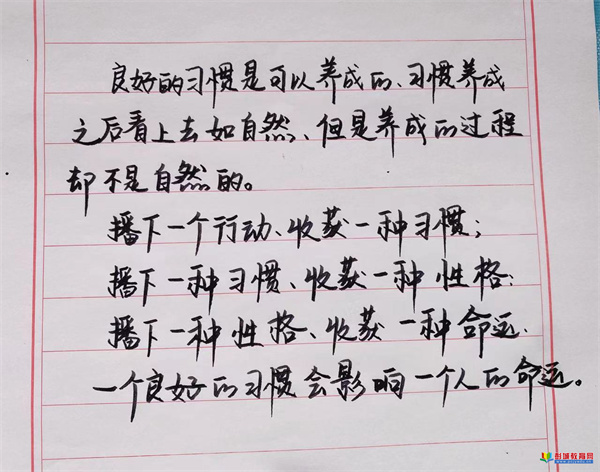 良好的习惯是可以养成的、习惯养成
之后看上去如自然、但是养成的过程
却不是自然的。
播下一个行动、收获一种习惯;
播下一种习惯、收获一种性格;
播下一种性格、收获一种命运.
一个良好的习惯会影响一个人的命运。
彭城教育网